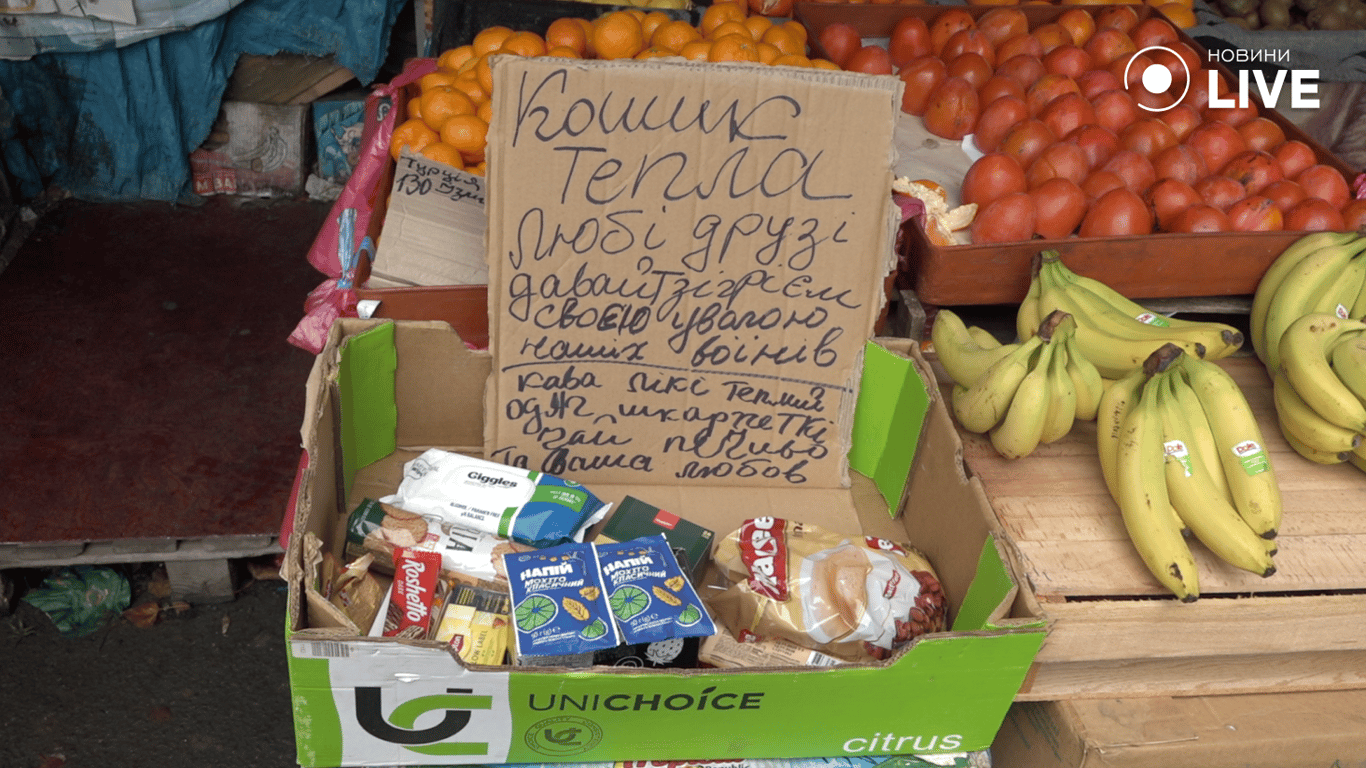 НОВИНИ
LIVE
Кошик
Тепла
Любі друзі
давайт зігрієм
своєю увагою
наших воїнів
кава ліки теплий
одяг шкарпетки
чай печиво
Та Ваша любов
Турція
130
Giggles
Roshetto
НАПІЙ
МОХІТО
КЛАСИЧНИЙ
НАПІЙ
МОХІТО
КЛАСИЧНИЙ
UNICHOICE
citrus